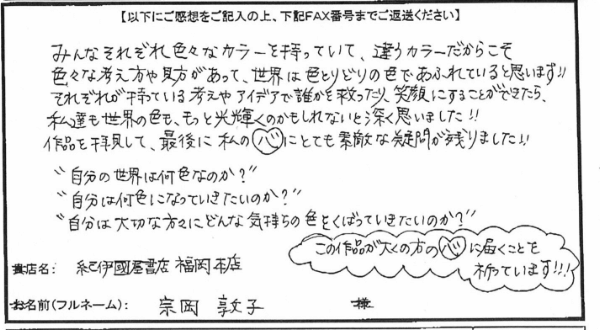 【以下にご感想をご記入の上、下記FAX番号までご返送ください】
みんなそれぞれ色々なカラーを持っていて、違うカラーだからこそ
色々な考え方や見方があって、世界は色とりどりの色であふれていると思います!!
それぞれが持っている考えやアイデアで誰かを救ったり、笑顔にすることができたら、
私達も世界の色も、もっと光輝くのかもしれないと深く思いました!!
作品を拝見して、最後に私の心にとても素敵な疑問が残りました!!
"自分の世界は何色なのか?"
"自分は何色になっていきたいのか?"
"自分は大切な方々にどんな気持ちの色をくばっていきたいのか?"
この作品が多くの方の心に届くことを
祈っています!!!
貴店名: 紀伊國屋書店 福岡本店
お名前(フルネーム): 宗岡 敦子 様